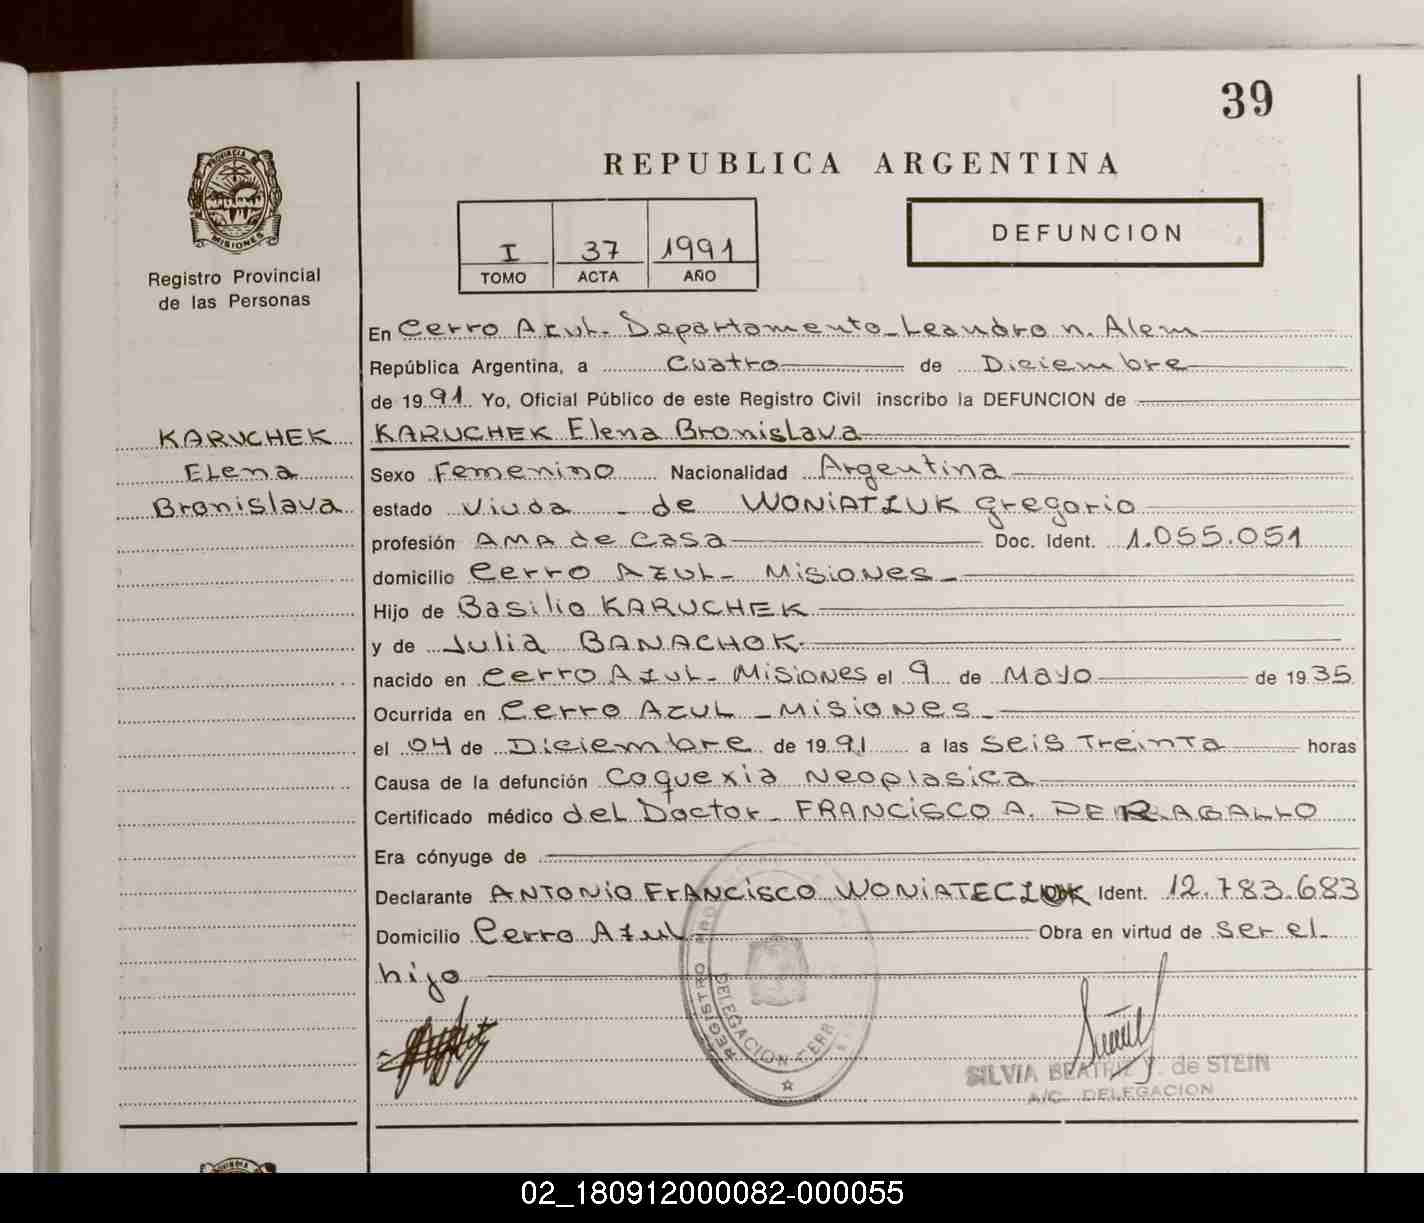 39
PROVINCIA DE
MISIONES
REPUBLICA ARGENTINA
Registro Provincial
de las Personas
I 37 1991
TOMO ACTA AÑO
DEFUNCION
En Cerro Azul. Departamento Leandro n. Alem
República Argentina, a Cuatro de Diciembre
de 1991. Yo, Oficial Público de este Registro Civil inscribo la DEFUNCION de
KARUCHEK
KARUCHEK Elena Bronislava
Elena
Sexo Femenino Nacionalidad Argentina
Bronislava
estado Viuda - de WONIATZUK gregorio
profesión AMA de casa Doc. Ident. 1.055.051
domicilio Cerro AZUL - Misiones -
Hijo de Basilio KARUCHEK
y de Julia BANACHOK.
nacido en Cerro Azul - Misiones el 9 de Mayo de 1935
Ocurrida en Cerro AZUL - Misiones -
el 04 de Diciembre de 1991 a las seis Treinta horas
Causa de la defunción Coquexia Neoplasica
Certificado médico del Doctor - FRANCISCO A. PERAGALLO
Era cónyuge de
Declarante ANTONIO FrANCISCO WONIATECZUK Ident. 12.783.683
Domicilio Cerro Azul Obra en virtud de ser el
hijo
REGISTRO
DELEGACION CERR
SILVIA BEATRIZ Y. de STEIN
A/C. DELEGACION
02_180912000082-000055